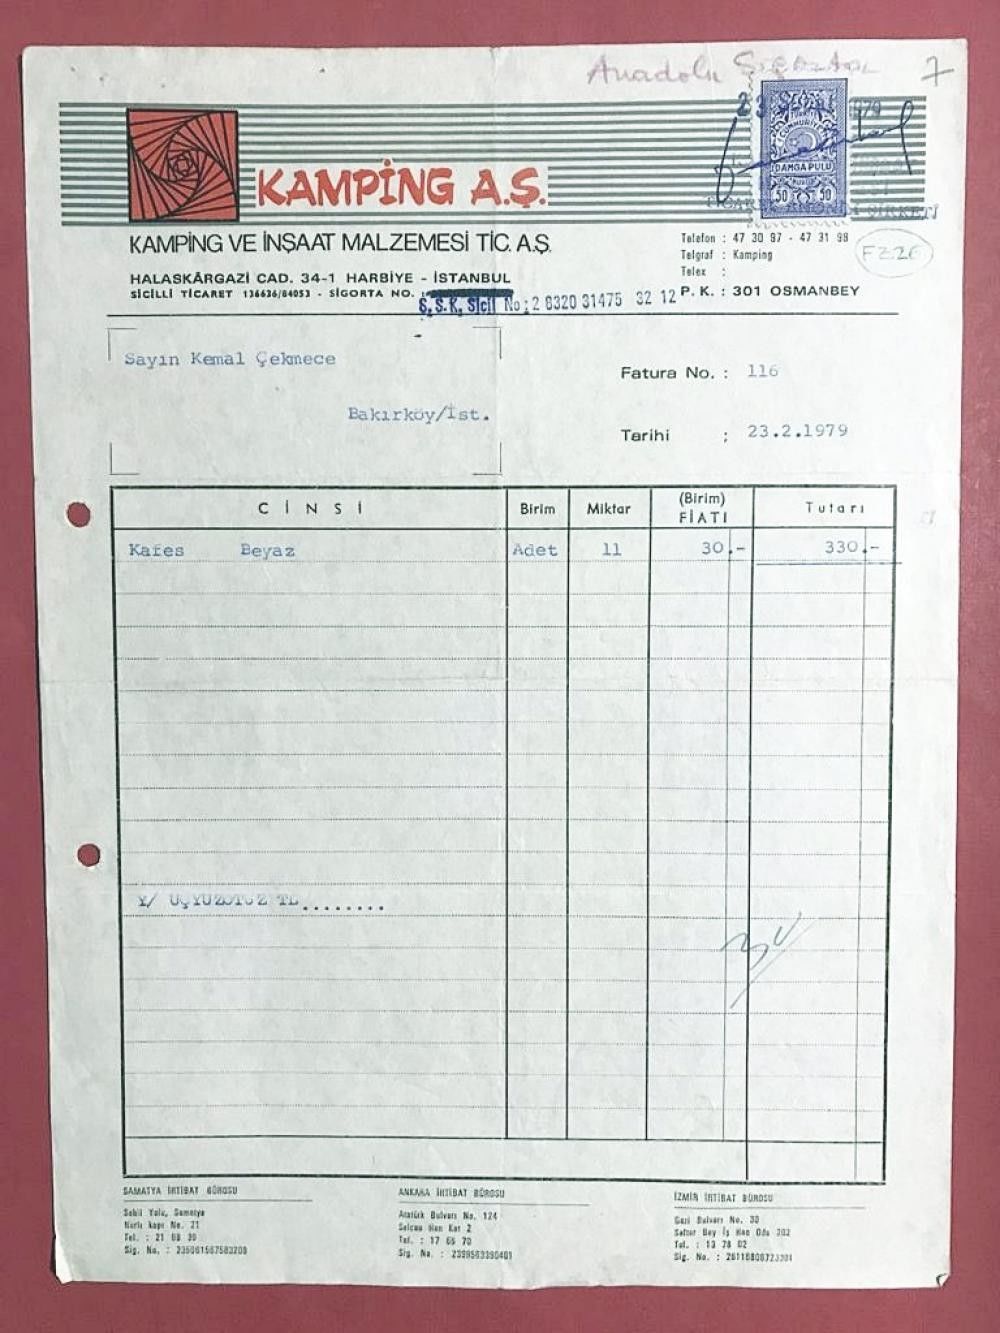 Anadolu
7
23 Şubat 1979
TÜRKİYE
CUMHURİYETİ
DAMGA PULU
50 KURUŞ 50
KAMPİNG A.Ş.
TİCARET ANONİM ŞİRKETİ
KAMPİNG VE İNŞAAT MALZEMESİ TİC. A.Ş.
HALASKÂRGAZİ CAD. 34-1 HARBİYE - İSTANBUL
SİCİLLİ TİCARET 136636/84053 - SİGORTA NO. :
S.S.K. Sicil No: 2 6320 31475 32 12
Telefon : 47 30 97 - 47 31 98
Telgraf : Kamping
Telex :
P. K. : 301 OSMANBEY
FZ26
Sayın Kemal Çekmece
Bakırköy/İst.
Fatura No. : 116
Tarihi : 23.2.1979
CİNSİ Birim Miktar (Birim) FİATI Tutarı
Kafes Beyaz Adet 11 30.- 330.-
Y/ ÜÇYÜZOTUZ TL........
SAMATYA İRTİBAT BÜROSU
Sahil Yolu, Samatya
Narlı kapı No. 21
Tel. : 21 68 39
Sig. No. : 235061567583208
ANKARA İRTİBAT BÜROSU
Atatürk Bulvarı No. 124
Selcan Han Kat 2
Tel. : 17 65 70
Sig. No. : 2399563390401
İZMİR İRTİBAT BÜROSU
Gazi Bulvarı No. 30
Saffet Bey İş Han Oda 202
Tel. : 13 78 02
Sig. No. : 26116806723301